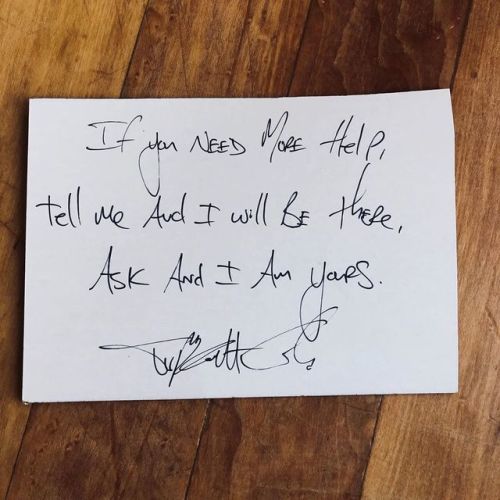 If you NEED MORE Help,
tell me And I will BE there,
Ask And I Am yours.